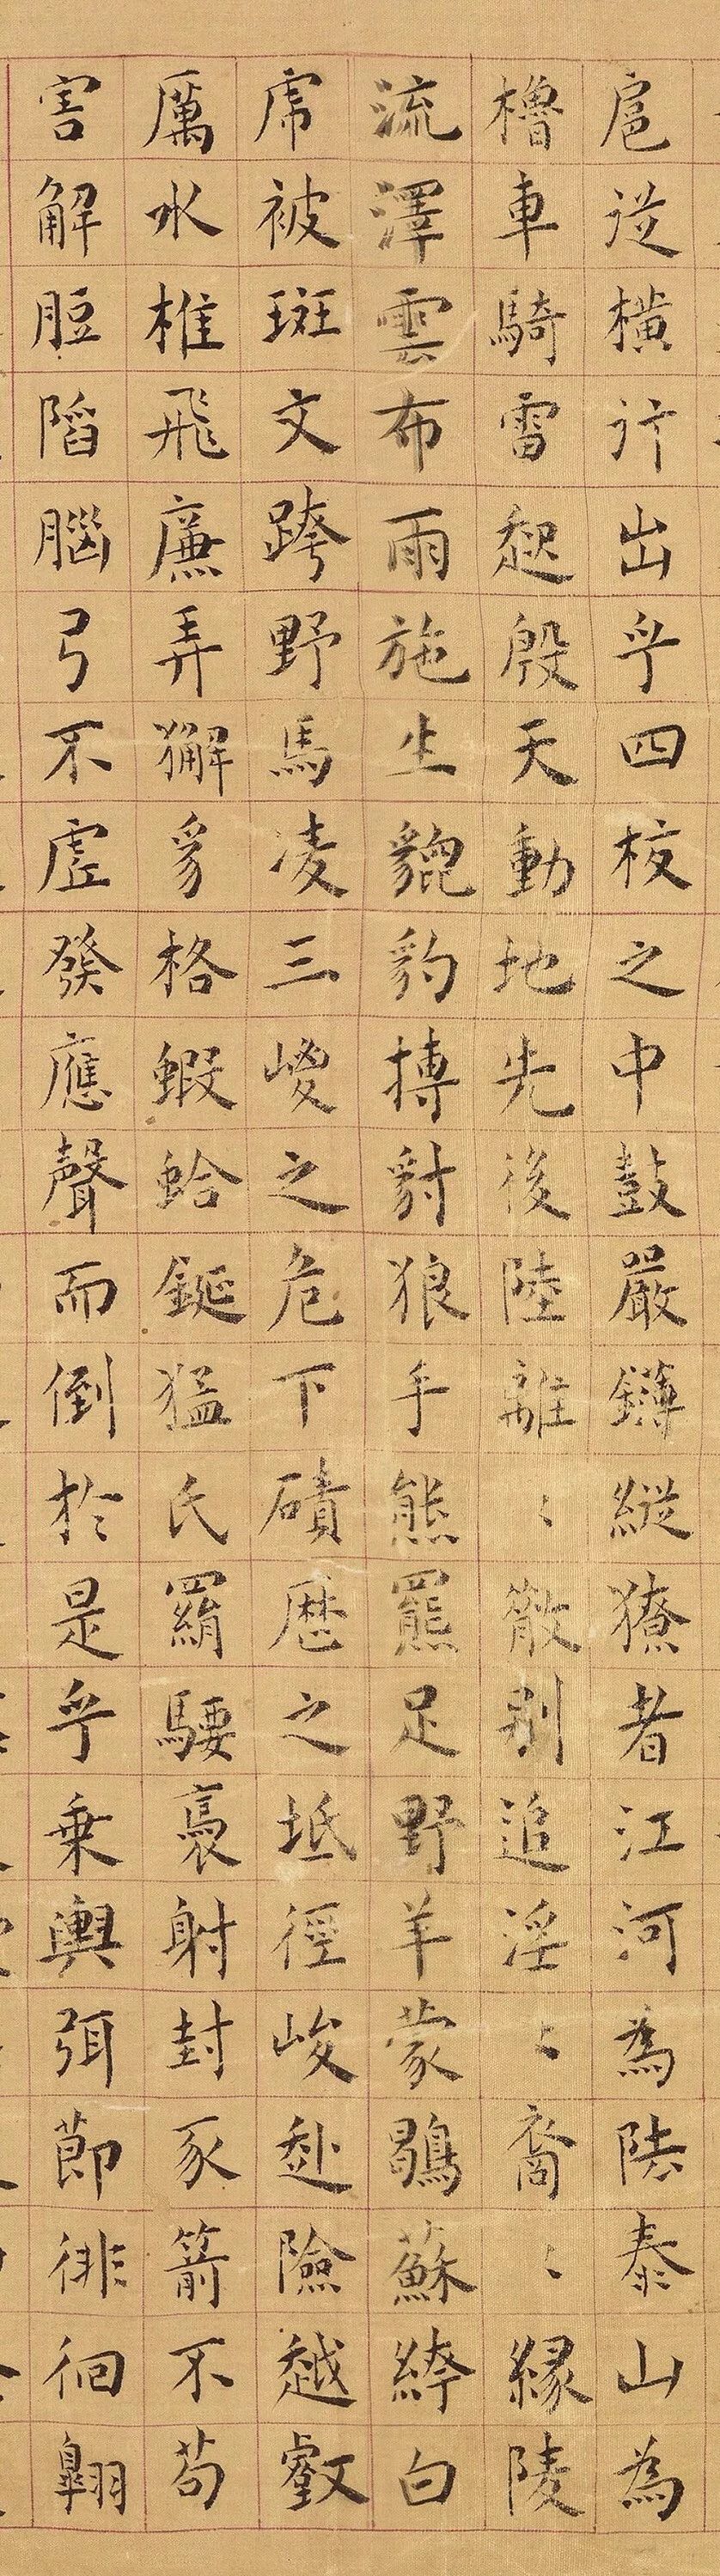 扈從橫行出乎四校之中鼓嚴鏄縱獠者江河為阹泰山為
櫓車騎雷起殷天動地先後陸離〻散别追淫〻裔〻緣陵
流澤雲布雨施生貔豹搏豺狼手熊羆足野羊蒙鶡蘇絝白
虎被斑文跨野馬凌三嵕之危下磧歷之坻徑峻赴險越壑
厲水椎飛廉弄獬豸格蝦蛤鋋猛氏羂騕褭射封豕箭不苟
害解脰陷腦弓不虛發應聲而倒於是乎乘輿弭節徘徊翱